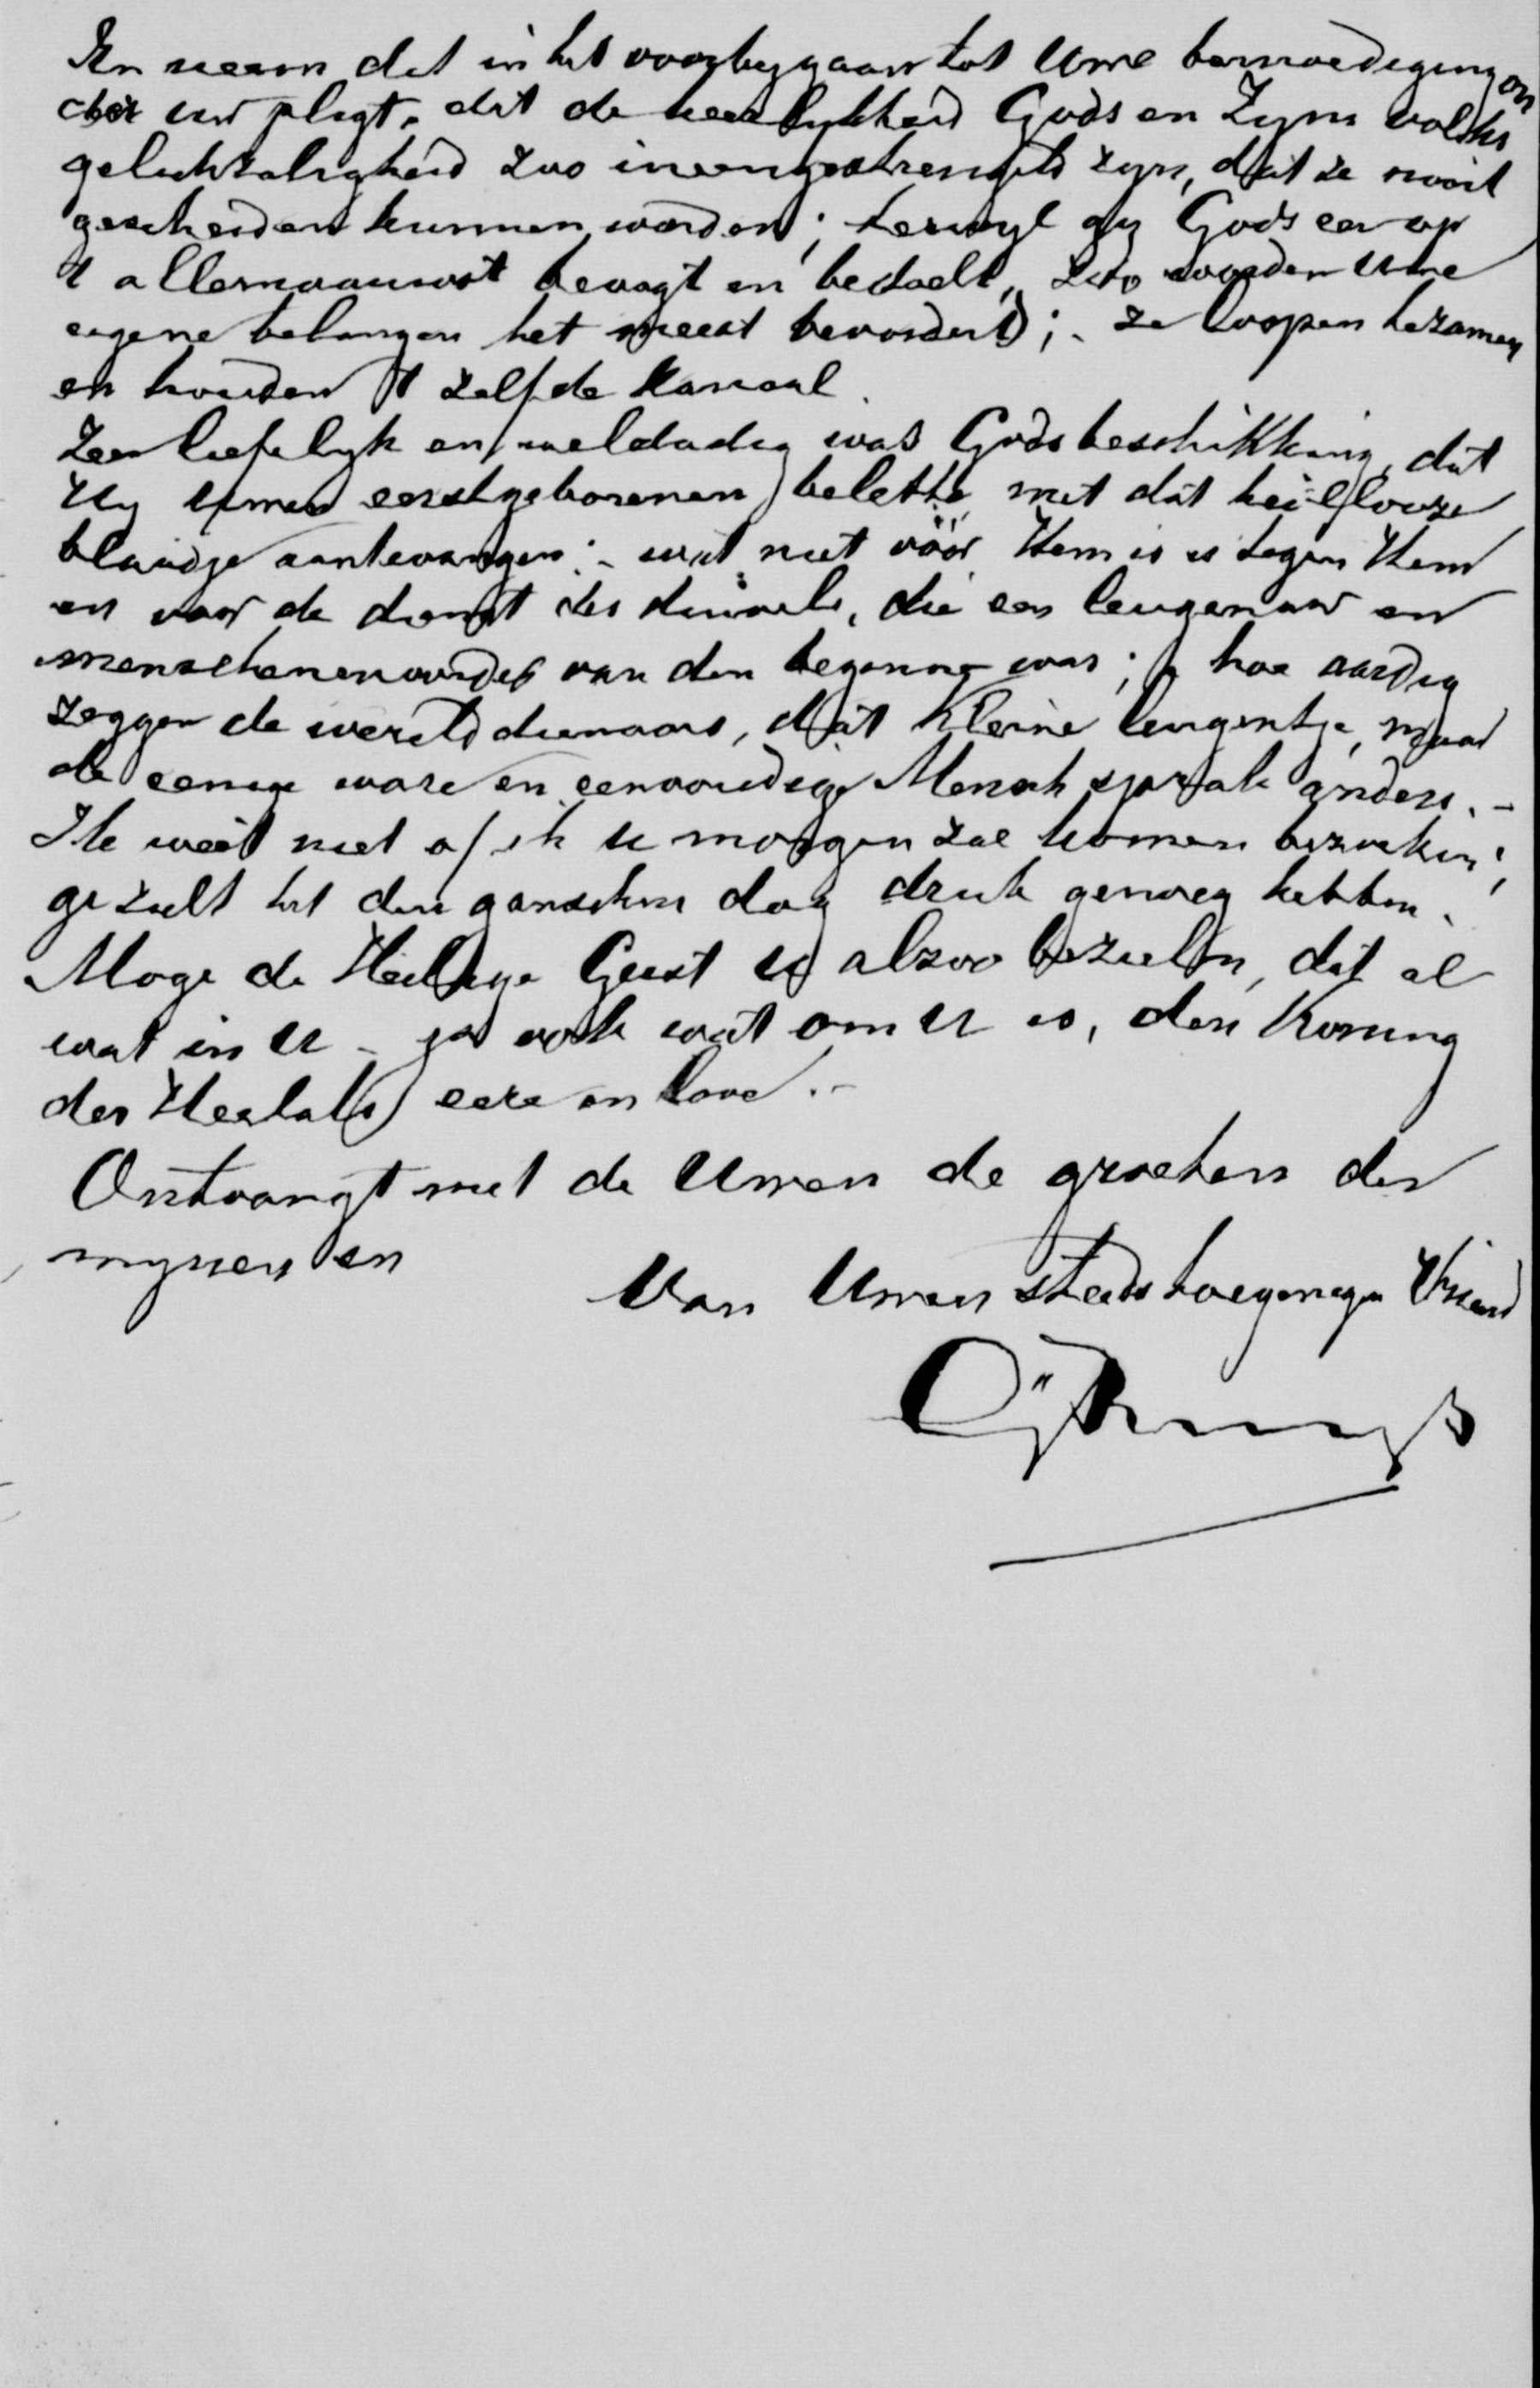 En neem dit in het voorbygaan tot Uwe bemoediging on
der uw pligt, dat de heerlykheid Gods en Zyns volks
gelukzaligheid zoo ineengestrengeld zyn, dat ze nooit
gescheiden kunnen worden; terwyl gy Gods eer op
't allernaauwst bevaagt en bedoelt, zoo worden Uwe
eigene belangen het meest bevorderd; - ze loopen tezamen
en houden 't zelfde kanaal.
Zeer liefelyk en weldadig was Gods beschikking, dat
Hy Uwen eerstgeborenen belette met dat heillooze
blaadje aantevangen; - wat niet vóór Hem is is tegen Hem
en voor de dienst des duivels, die een leugenaar en
menschenmoorder van den beginne was; hoe aardig
zeggen de werelddienaars, dat kleine leugentje, maar
de eenige ware en eenvoudige Mensch sprak anders. -
Ik weet niet of ik u morgen zal komen bezoeken;
ge zult het den ganschen dag druk genoeg hebben.
Moge de Heilige Geest U alzoo bezielen, dat al
wat in U - ja ook wat om U is, den Koning
des Heelals eere en love. -
Ontvangt met de Uwen de groeten der
mynen en
Van Uwen steeds toegenegen Vriend